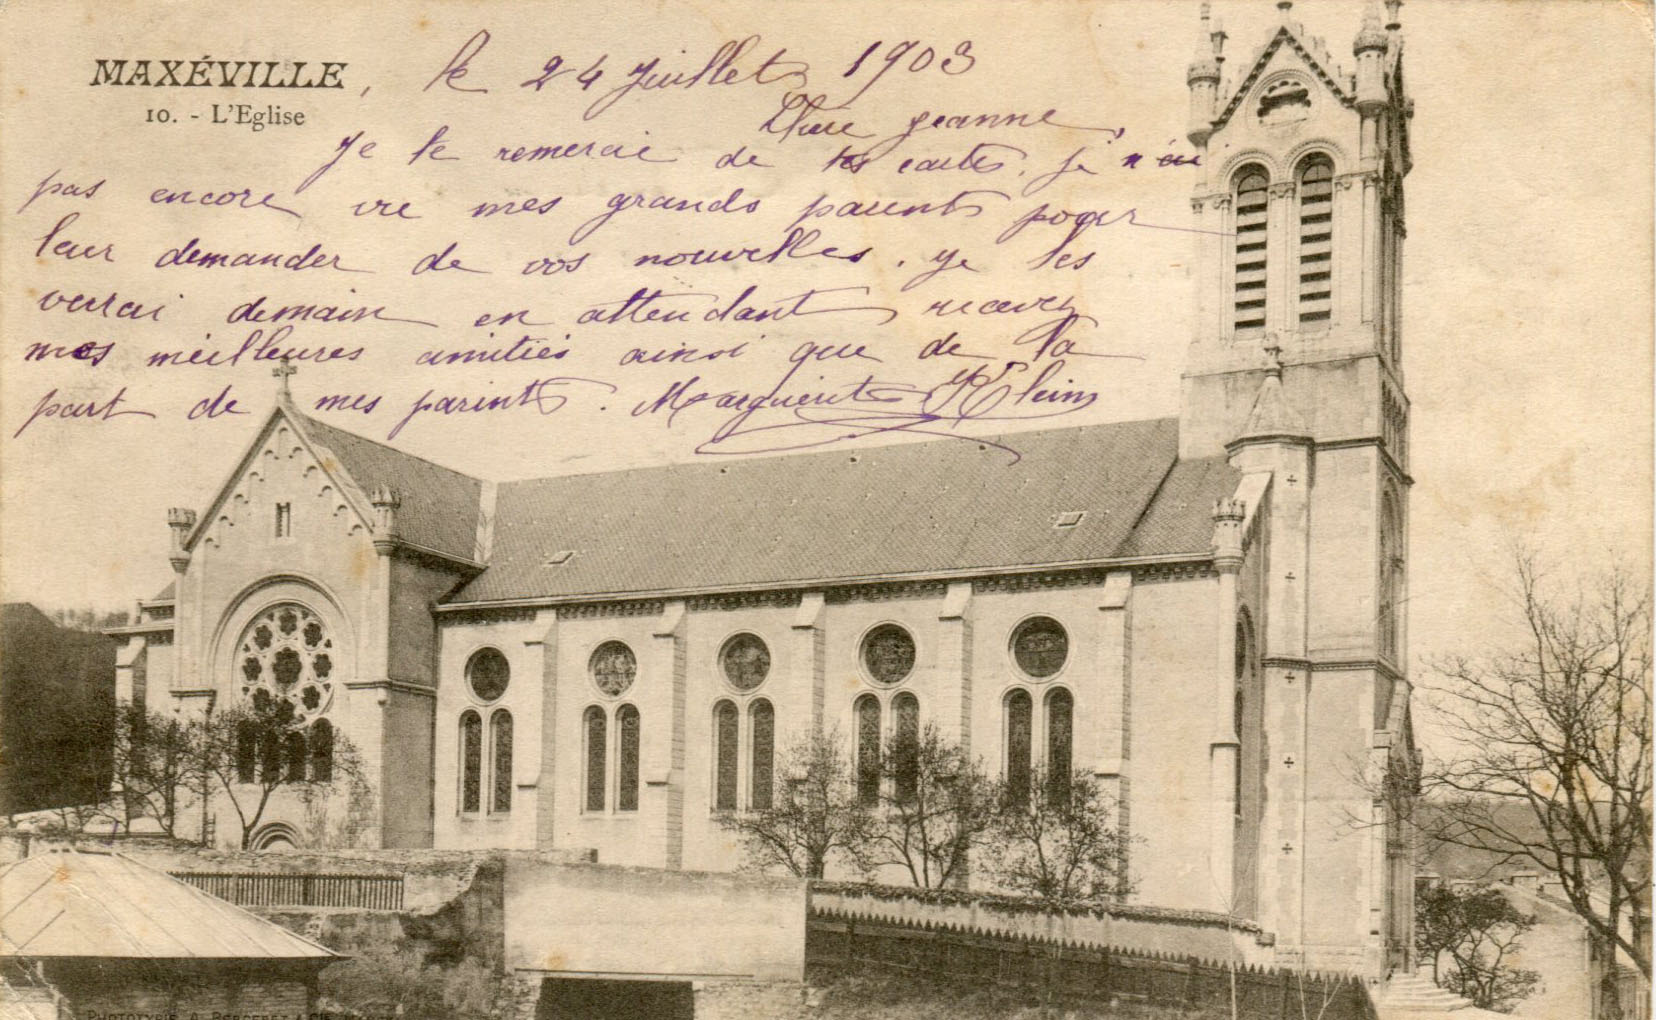 MAXÉVILLE, le 24 Juillet 1903
10. - L'Eglise
Chère Jeanne,
Je te remercie de tes cartes. Je n'ai
pas encore vu mes grands parents pour
leur demander de vos nouvelles. Je les
verrai demain en attendant recevez
mes meilleures amitiés ainsi que de la
part de mes parents. Marguerite Klein
PHOTOTYPIE A. BERGERET & CIE, NANCY